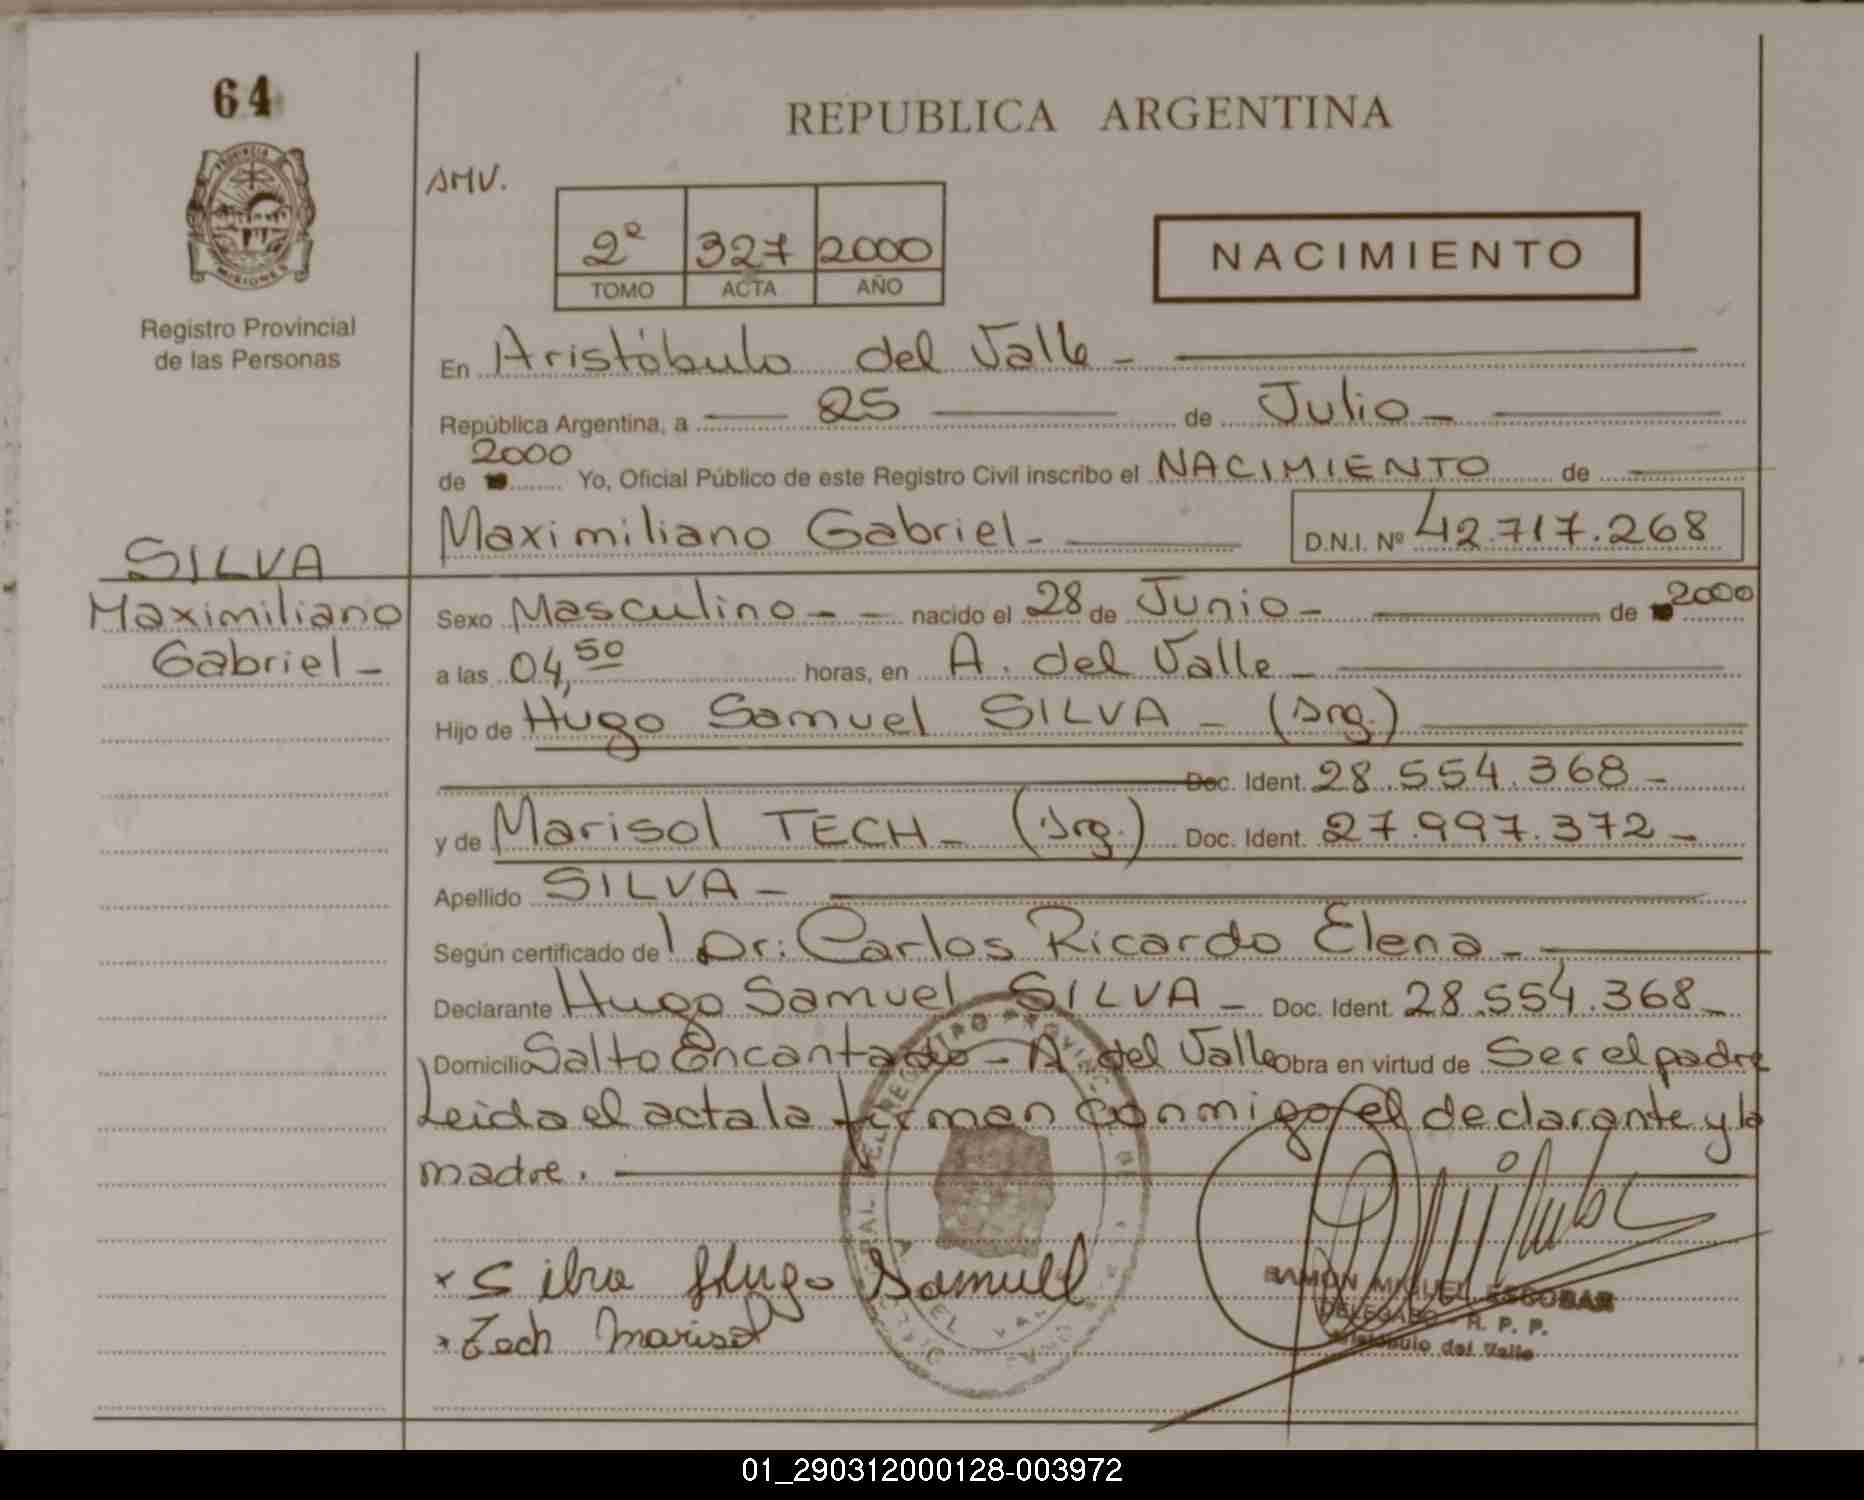 64
REPUBLICA ARGENTINA
PROVINCIA DE
MISIONES
Registro Provincial
de las Personas
AMV.
2º 327 2000
TOMO ACTA AÑO
NACIMIENTO
En Aristóbulo del Valle -
República Argentina, a 25 de Julio -
2000
de Yo, Oficial Público de este Registro Civil inscribo el NACIMIENTO de
Maximiliano Gabriel - D.N.I. Nº 42.717.268
SILVA
Maximiliano
Gabriel -
Sexo Masculino - - nacido el 28 de Junio - de 2000
a las 04,50 horas, en A. del Valle -
Hijo de Hugo Samuel SILVA - (Arg.)
Doc. Ident. 28.554.368 -
y de Marisol TECH - (Arg.) Doc. Ident. 27.997.372 -
Apellido SILVA -
Según certificado de Dr: Carlos Ricardo Elena -
Declarante Hugo Samuel SILVA - Doc. Ident. 28.554.368 -
Domicilio Salto Encantado - A. del Valle Obra en virtud de Ser el padre
Leida el acta la firman conmigo el declarante y la
madre.
x Silva Hugo Samuel
x Tech Marisol
RAMON MIGUEL ESCOBAR
DELEGADO R. P. P.
Aristóbulo del Valle
01_290312000128-003972